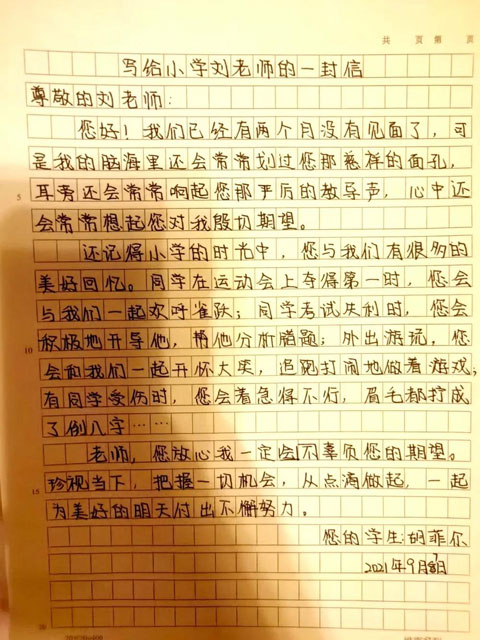 共 页 第 页
写给小学刘老师的一封信
尊敬的刘老师：
您好！我们已经有两个月没有见面了，可
是我的脑海里还会常常划过您那慈祥的面孔，
耳旁还会常常响起您那严厉的教导声，心中还
会常常想起您对我殷切期望。
还记得小学的时光中，您与我们有很多的
美好回忆。同学在运动会上夺得第一时，您会
与我们一起欢呼雀跃；同学考试失利时，您会
积极地开导他，帮他分析错题；外出游玩，您
会和我们一起开怀大笑，追跑打闹地做着游戏；
有同学受伤时，您会着急得不行，眉毛都拧成
了倒八字……
老师，您放心我一定会不辜负您的期望。
珍视当下，把握一切机会，从点滴做起，一起
为美好的明天付出不懈努力。
您的学生：胡菲尔
2021年9月日